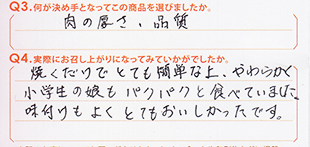 Q3.何が決め手となってこの商品を選びましたか。
肉の厚さ、品質
Q4.実際にお召し上がりになってみていかがでしたか。
焼くだけでとても簡単な上、やわらかく
小学生の娘もパクパクと食べていました。
味付けもよくとてもおいしかったです。